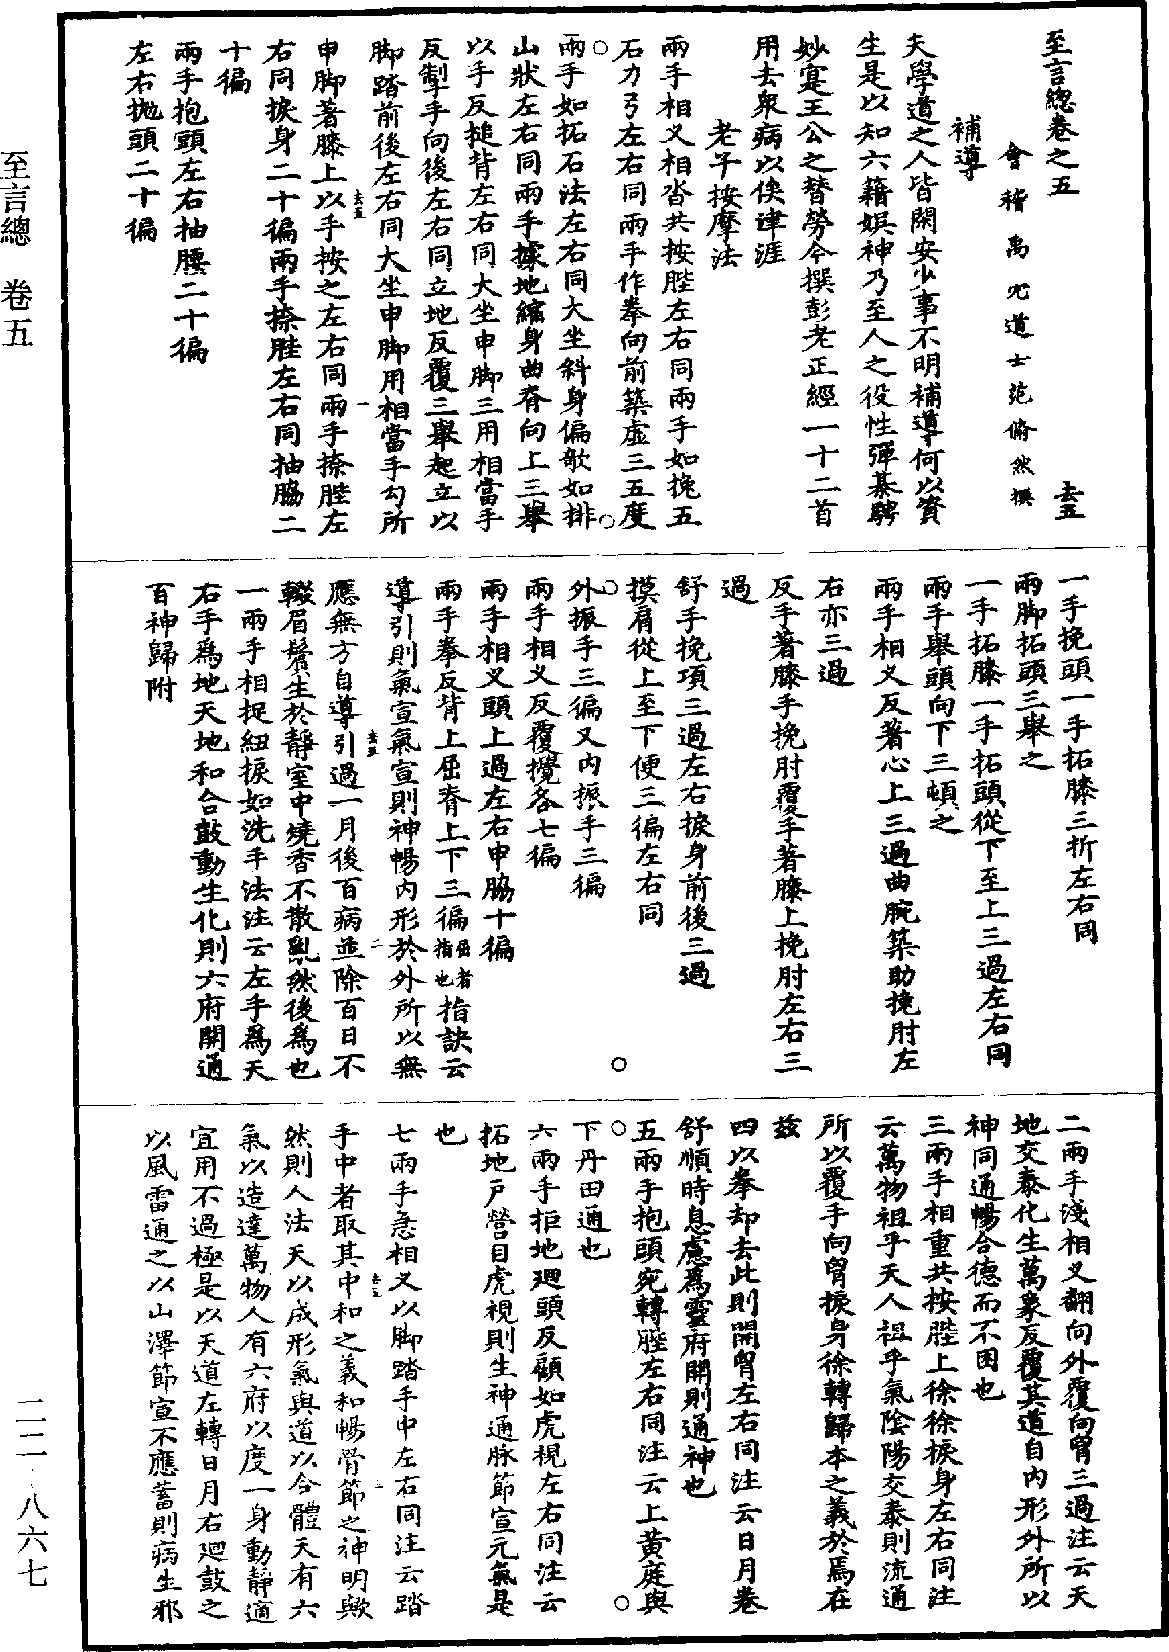 至言總卷之五　去五
會稽禹穴道士范翛然撰
補導
夫學道之人皆閑安少事不明補導何以資
生是以知六籍娛神乃至人之役性彈棊騁
妙寔王公之替勞今撰彭老正經一十二首
用去衆病以俟津涯
老子按摩法
兩手相叉相沓共按䏶左右同兩手如挽五
石力弓左右同兩手作拳向前築虛三五度
兩手如拓石法左右同大坐斜身偏欹如排
山狀左右同兩手據地縮身曲脊向上三舉
以手反搥背左右同大坐申脚三用相當手
反掣手向後左右同立地反覆三舉起立以
脚踏前後左右同大坐申脚用相當手勾所
申脚著膝上以手按之左右同兩手捺䏶左
右同捩身二十徧兩手捺䏶左右同抽脇二
十徧
兩手抱頭左右抽腰二十徧
左右拋頭二十徧
一手挽頭一手拓膝三折左右同
兩脚拓頭三舉之
一手拓膝一手拓頭從下至上三過左右同
兩手舉頭向下三頓之
兩手相叉反著心上三過曲腕築助挽肘左
右亦三過
反手著膝手挽肘覆手著膝上挽肘左右三
過
舒手挽項三過左右捩身前後三過
摸肩從上至下便三徧左右同
外振手三徧又內振手三徧
兩手相叉反覆攪各七徧
兩手相叉頭上過左右申脇十徧
兩手拳反背上屈脊上下三徧屈者指也指訣云
導引則氣宣氣宣則神暢內形於外所以無
應無方自導引過一月後百病並除百日不
輟眉鬢生於靜室中燒香不散亂然後爲也
一兩手相捉紐捩如洗手法注云左手爲天
右手爲地天地和合鼓動生化則六府開通
百神歸附
二兩手淺相叉翻向外覆向胷三過注云天
地交泰化生萬象反覆其道自內形外所以
神同通暢合德而不困也
三兩手相重共按䏶上徐徐捩身左右同注
云萬物祖乎天人祖乎氣陰陽交泰則流通
所以覆手向胷捩身徐轉歸本之義於焉在
兹
四以拳却去此則開胷左右同注云日月卷
舒順時息慮爲靈府開則通神也
五兩手抱頭宛轉䏶左右同注云上黃庭與
下丹田通也
六兩手拒地廻頭反顧如虎視左右同注云
拓地戶營目虎視則生神通脉節宣元氣是
也
七兩手急相叉以脚踏手中左右同注云踏
手中者取其中和之義和暢骨節之神明歟
然則人法天以成形氣與道以合體天有六
氣以造達萬物人有六府以度一身動靜適
宜用不過極是以天道左轉日月右廻鼓之
以風雷通之以山澤節宣不應蓄則病生邪
至言總　卷五
二二·八六七